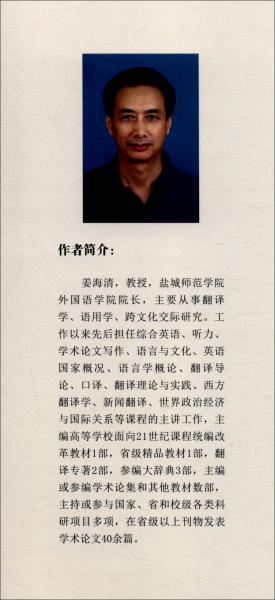 作者简介：
姜海清，教授，盐城师范学院
外国语学院院长，主要从事翻译
学、语用学、跨文化交际研究。工
作以来先后担任综合英语、听力、
学术论文写作、语言与文化、英语
国家概况、语言学概论、翻译导
论、口译、翻译理论与实践、西方
翻译学、新闻翻译、世界政治经济
与国际关系等课程的主讲工作，主
编高等学校面向21世纪课程统编改
革教材1部，省级精品教材1部，翻
译专著2部，参编大辞典3部，主编
或参编学术论集和其他教材数部，
主持或参与国家、省和校级各类科
研项目多项，在省级以上刊物发表
学术论文40余篇。